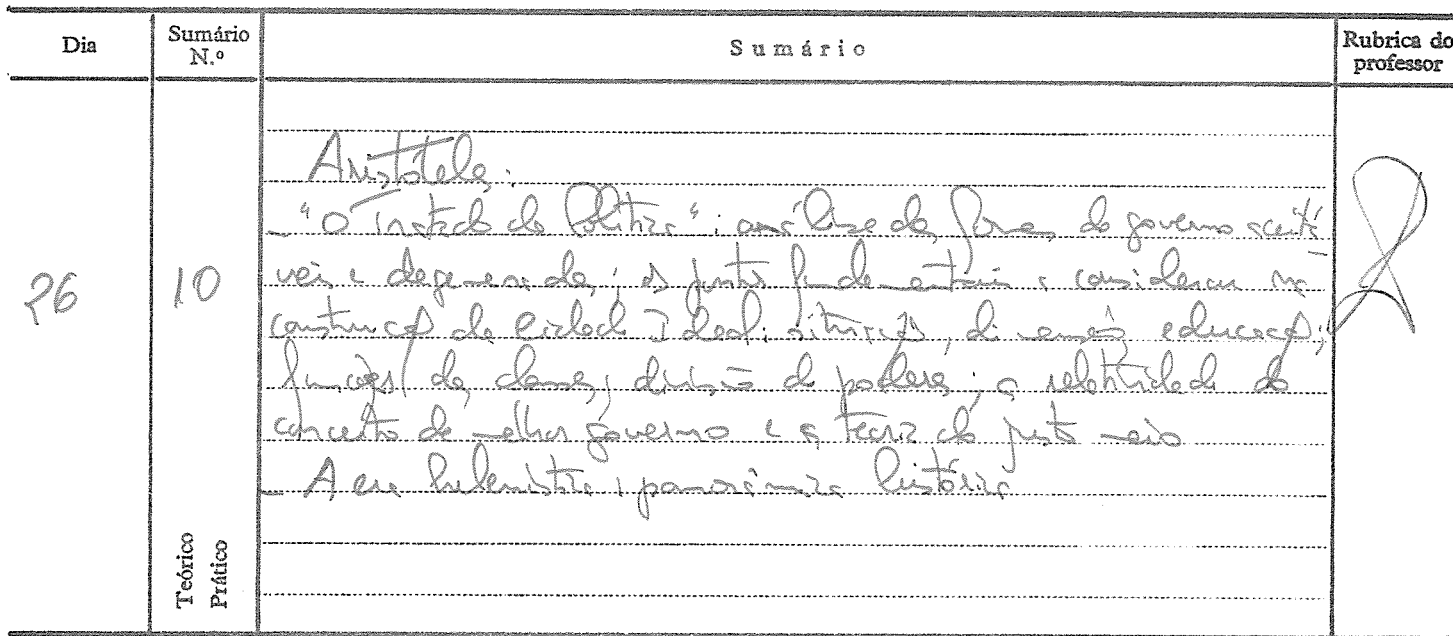 Dia
Sumário N.º
Sumário
Rubrica do professor
26
10
Aristóteles:
- "O Tratado da Política": análise das formas de governo aceitá-
veis e degeneradas; os pontos fundamentais a considerar na
construção da Cidade Ideal: situação, dimensão, educação,
funções das classes, divisão de poderes; a relatividade do
conceito de melhor governo e a teoria do justo meio
- A era helenística: panorâmica histórica
Teórico
Prático